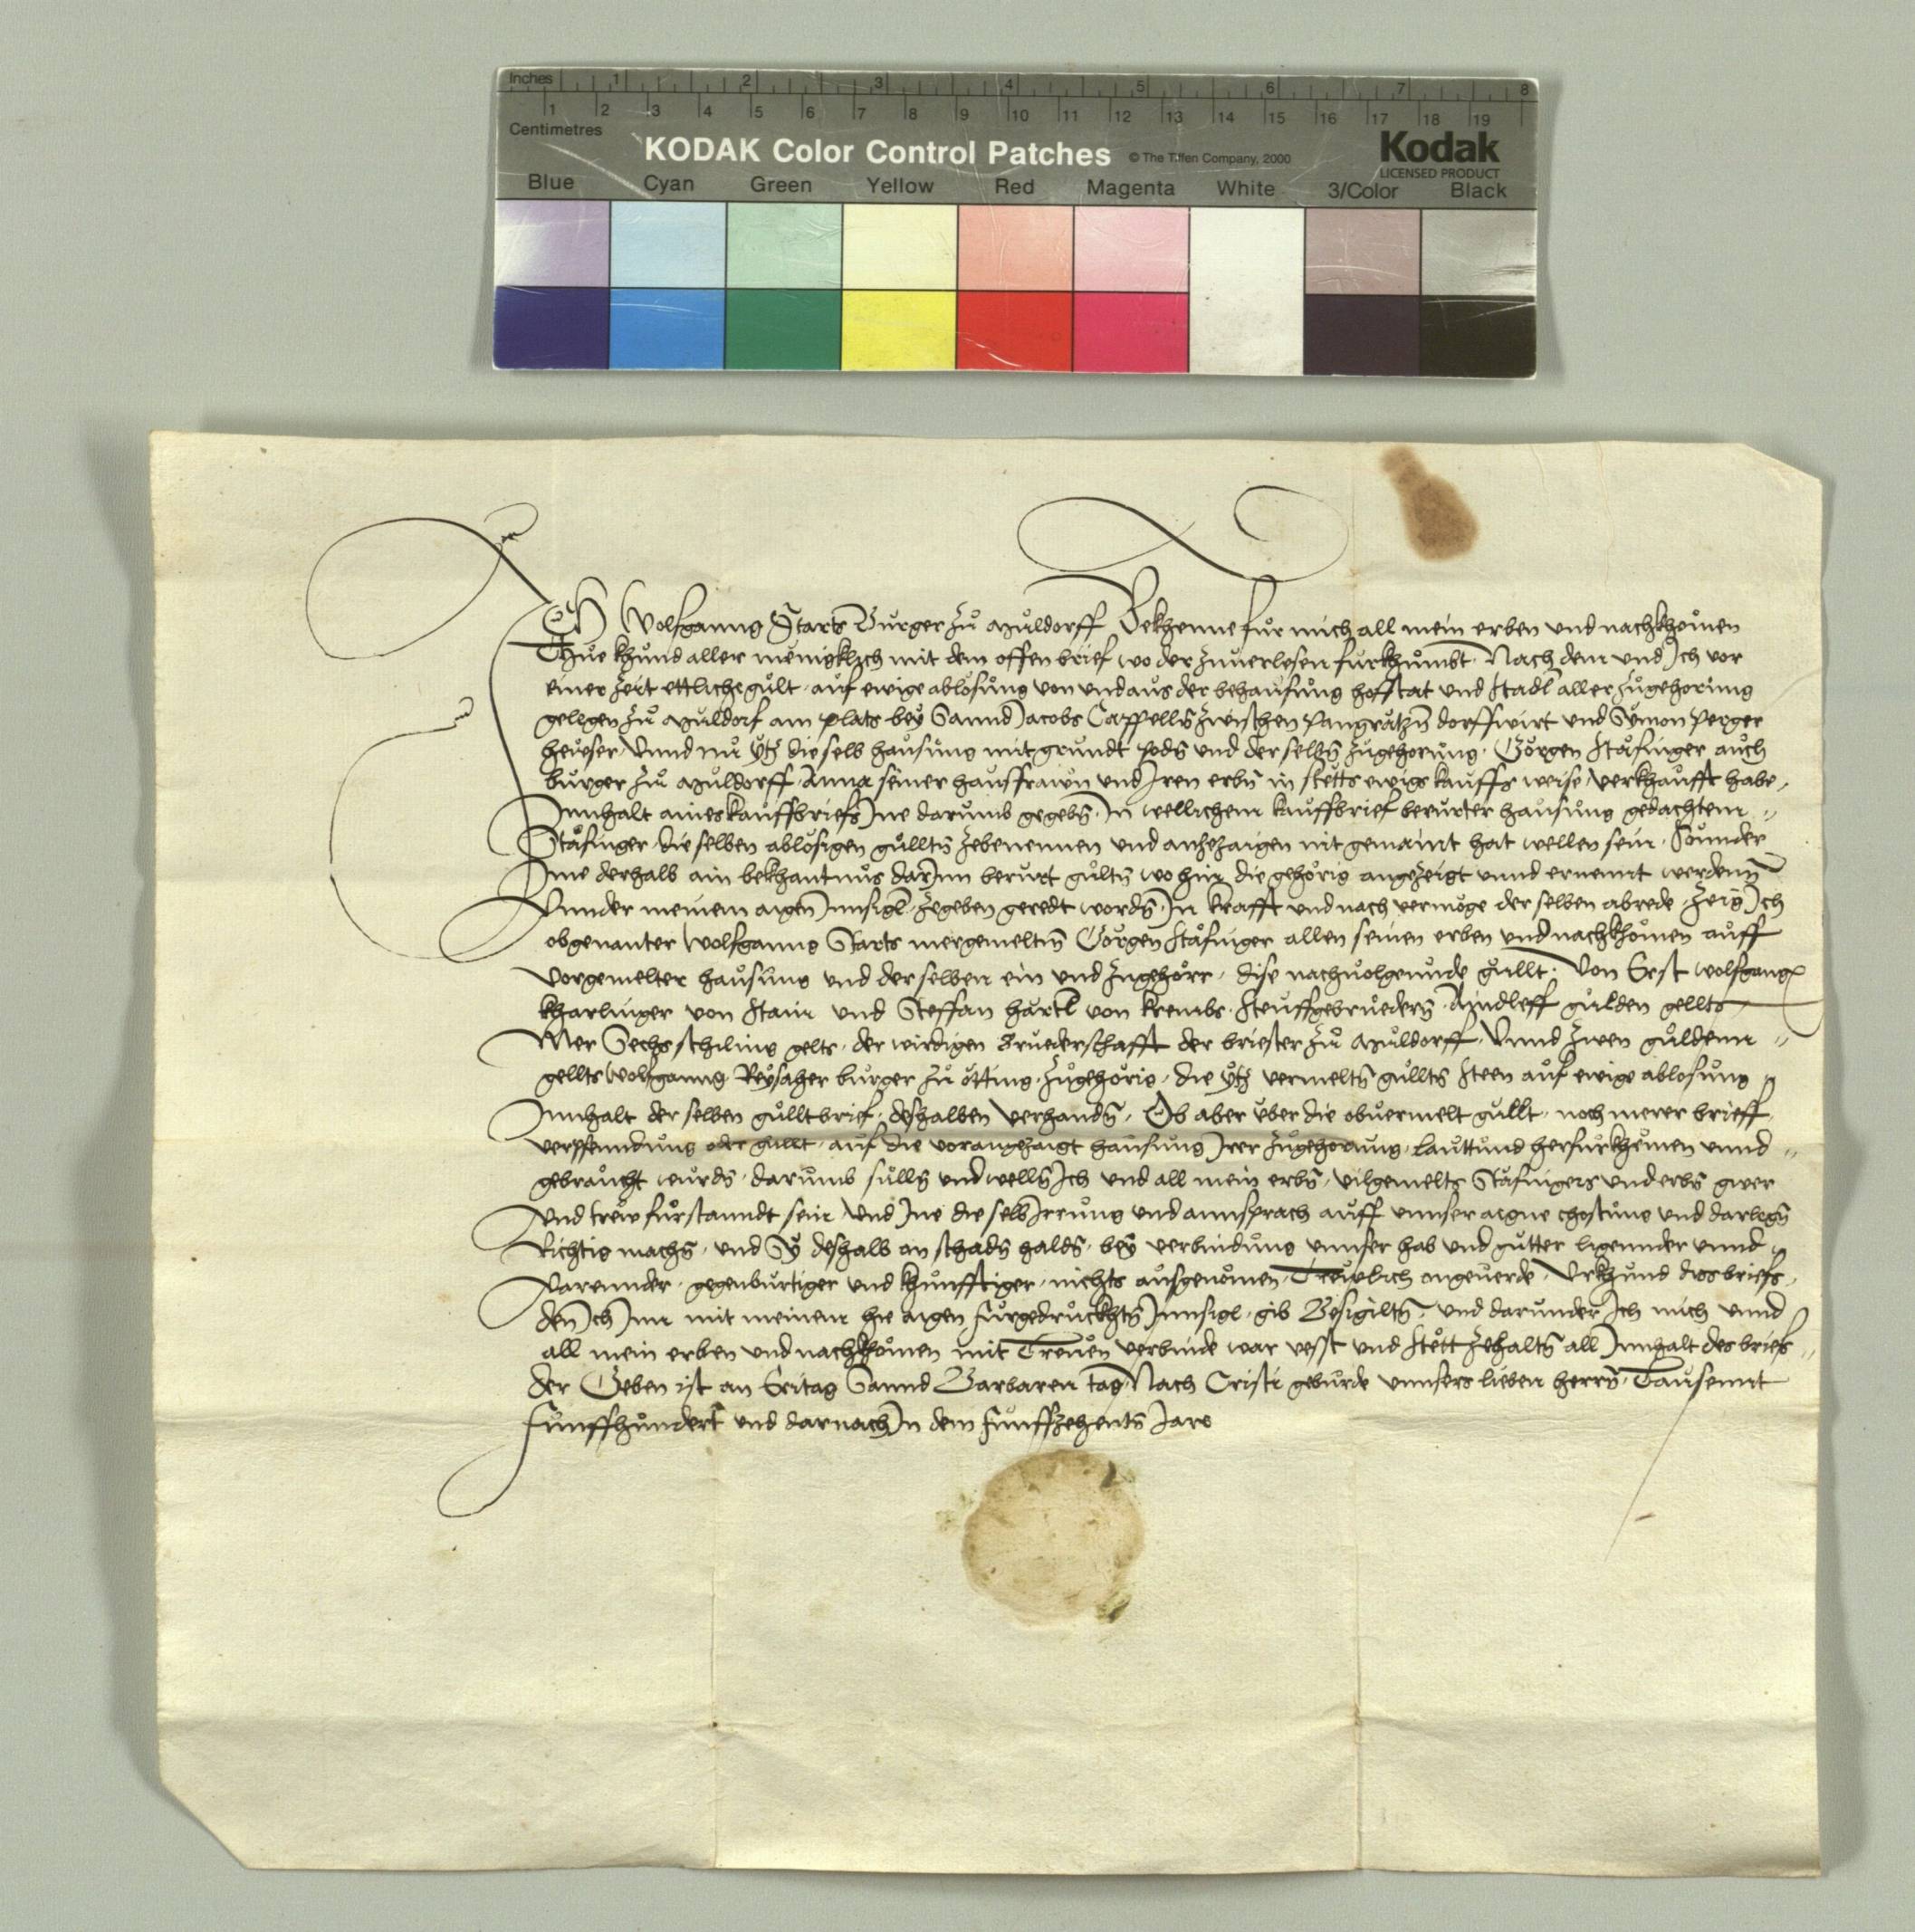 Inches 1 2 3 4 5 6 7 8
1 2 3 4 5 6 7 8 9 10 11 12 13 14 15 16 17 18 19
Centimetres
KODAK Color Control Patches © The Tiffen Company, 2000 Kodak
LICENSED PRODUCT
Blue Cyan Green Yellow Red Magenta White 3/Color Black
Ich Wolfganng Starts Burger zu Muldorff Bekhenne fur mich all mein erben und nachkhomen
Thue khund aller menigklich mit dem offen brief wo der zuuerlesen furkhumbt. Nach dem und Ich vor
einer zeit ettliche gult auf ewige ablosung von und aus der behausung hofstat und stadl aller zugehorung
gelegen zu Muldorf am plats bey Sannd Jacobs Cappelln zwischen Pangratzn dorffwirt und Symon Perger
heuser Unnd nu ytz die selb hausung mit grundt podn und der selbn zugehorung. Görgen Stafinger auch
burger zu Muldorff Anna seiner hausfrawn und Iren erbn in stetts ewigs kauffs weise verkhaufft habe,
Innhalt aines kauffbriefs Ine darumb gegebn. In wellichem kauffbrief berurter hausung gedachtem
Stafinger die selben ablosigen gulltn zebenennen und anzezaigen nit gemaint hat wellen sein. Sounder
Ime derhalb ain bekhantnus darInn berurt gultn wo hin die gehoris angezeigt unnd ernennt werdenn
Unnder meinem aigen Innsigl zegeben geredt wordn. In krafft und nach vermöge der selben abrede zeig Ich
obgenanter Wolfganng Starts mergemeltm Görgen Stafinger allen seinen erben und nachkhomen auff
vorgemelter hausung und der selben ein und zugehorr. dise nachuolgennde gullt. Von Erst Wolfgang
kharlinger von Stain und Steffan hartl von krembs Steuffgebruedern Aindleff gulden gellts
Mer Sechs schiling gelts der wirdigen Bruederschafft der briester zu Muldorff. Unnd zwen guldenn
gellts Wolfganng Reysaher burger zu ötting zugehoris. die ytz vermeltn gulltn steen auf ewige ablosung
Innhalt der selben gulltbrief deshalben verhandn. Ob aber uber die obuermelt gullt noch merer brieff
verpfenndung oder gullt auf die vorangezaigt hausung Irer zugehorung lautt und herfurkhomen unnd
gebraucht wurdn darumb sulln und welln Ich und all mein erbn vilgemelts Stafingers und erbn gwer
und trew furstanndt sein und Ine die selb Irrung und annsprach auff unnser aigne chostung und darlegn
Richtig machn und Sy deshalb an schadn haldn bey verbindung unnser hab und gutter ligennder unnd
varennder gegenburtiger und khunfftiger nichts ausgenomen Treulich ongeuerde. Urkhund dis briefs
den Ich Im mit meinem hie aigen furgedruckhtn Innsigl gib Besigiltn und darunder Ich mich unnd
all mein erben und nachkhomen mit Treuen verbinde war vesst und stett zehaltn all Innhalt des briefs
der Geben ist an Eritag Sannd Barbaren tag Nach Cristi geburde unnsers lieben herrn Tausennt
funffhundert und darnach In dem funffzehentn Jare